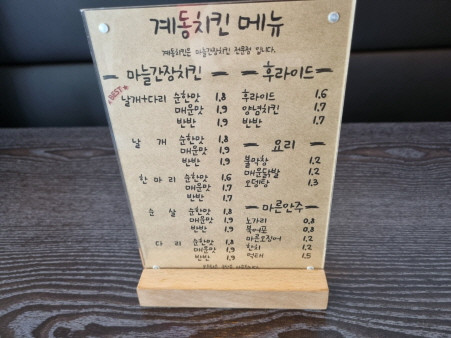 계동치킨 메뉴
계동치킨은 마늘간장치킨 전문점 입니다.
마늘간장치킨
BEST
날개+다리 순한맛 1.8
매운맛 1.9
반반 1.9
날개 순한맛 1.8
매운맛 1.9
반반 1.9
한마리 순한맛 1.6
매운맛 1.7
반반 1.7
순살 순한맛 1.8
매운맛 1.9
반반 1.9
다리 순한맛 1.8
매운맛 1.9
반반 1.9
후라이드
후라이드 1.6
양념치킨 1.7
반반 1.7
요리
불막창 1.2
매운닭발 1.2
오뎅탕 1.3
마른안주
노가리 0.8
북어포 0.8
마른오징어 1.2
한치 1.2
먹태 1.5